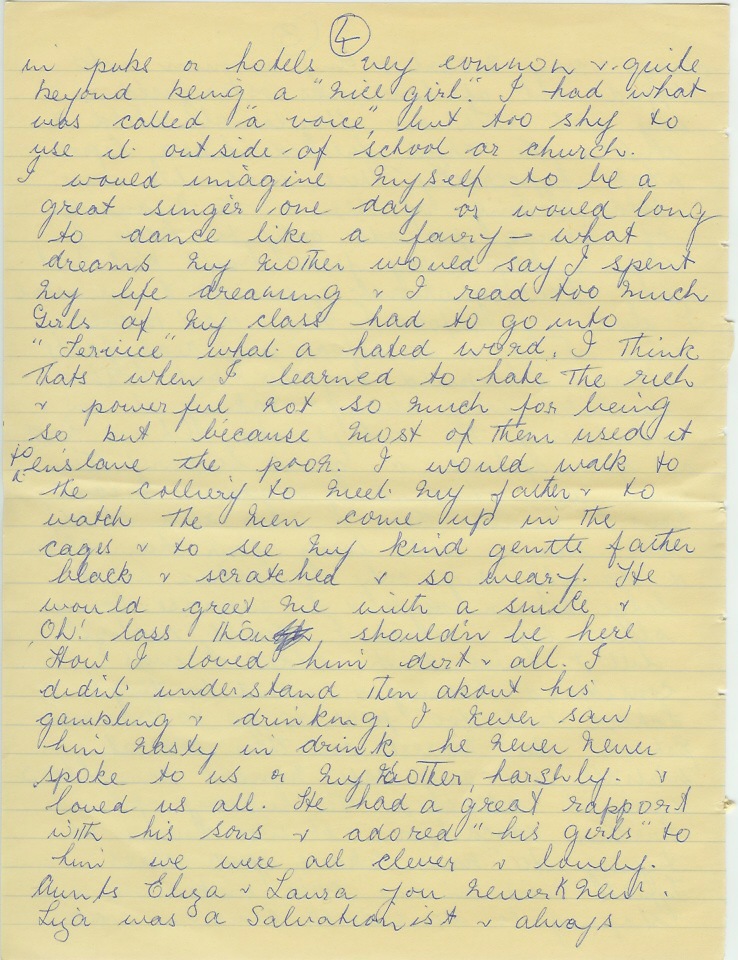 4
in pubs or hotels very common & quite
beyond being a "nice girl". I had what
was called "a voice", but too shy to
use it outside of school or church.
I would imagine myself to be a
great singer one day or would long
to dance like a fairy – what
dreams my mother would say I spent
my life dreaming & I read too much
Girls of my class had to go into
"Service" what a hated word, I think
thats when I learned to hate the rich
& powerful not so much for being
so but because most of them used it
to enslave the poor. I would walk to
the colliery to meet my father & to
watch the men come up in the
cages & to see my kind gentle father
black & scratched & so weary. He
would greet me with a smile &
Oh! lass thou shouldn be here
How I loved him dirt & all. I
didn't understand then about his
gambling & drinking. I never saw
him nasty in drink he never never
spoke to us or my mother, harshly. &
loved us all. He had a great rapport
with his sons & adored "his girls" to
him we were all clever & lovely.
Aunts Eliza & Laura you never knew.
Liza was a Salvationist & always